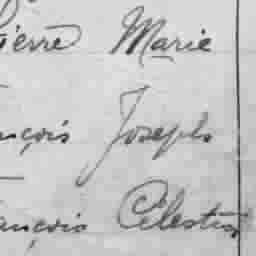 Pierre Marie
nçois Joseph
ançois Célestin